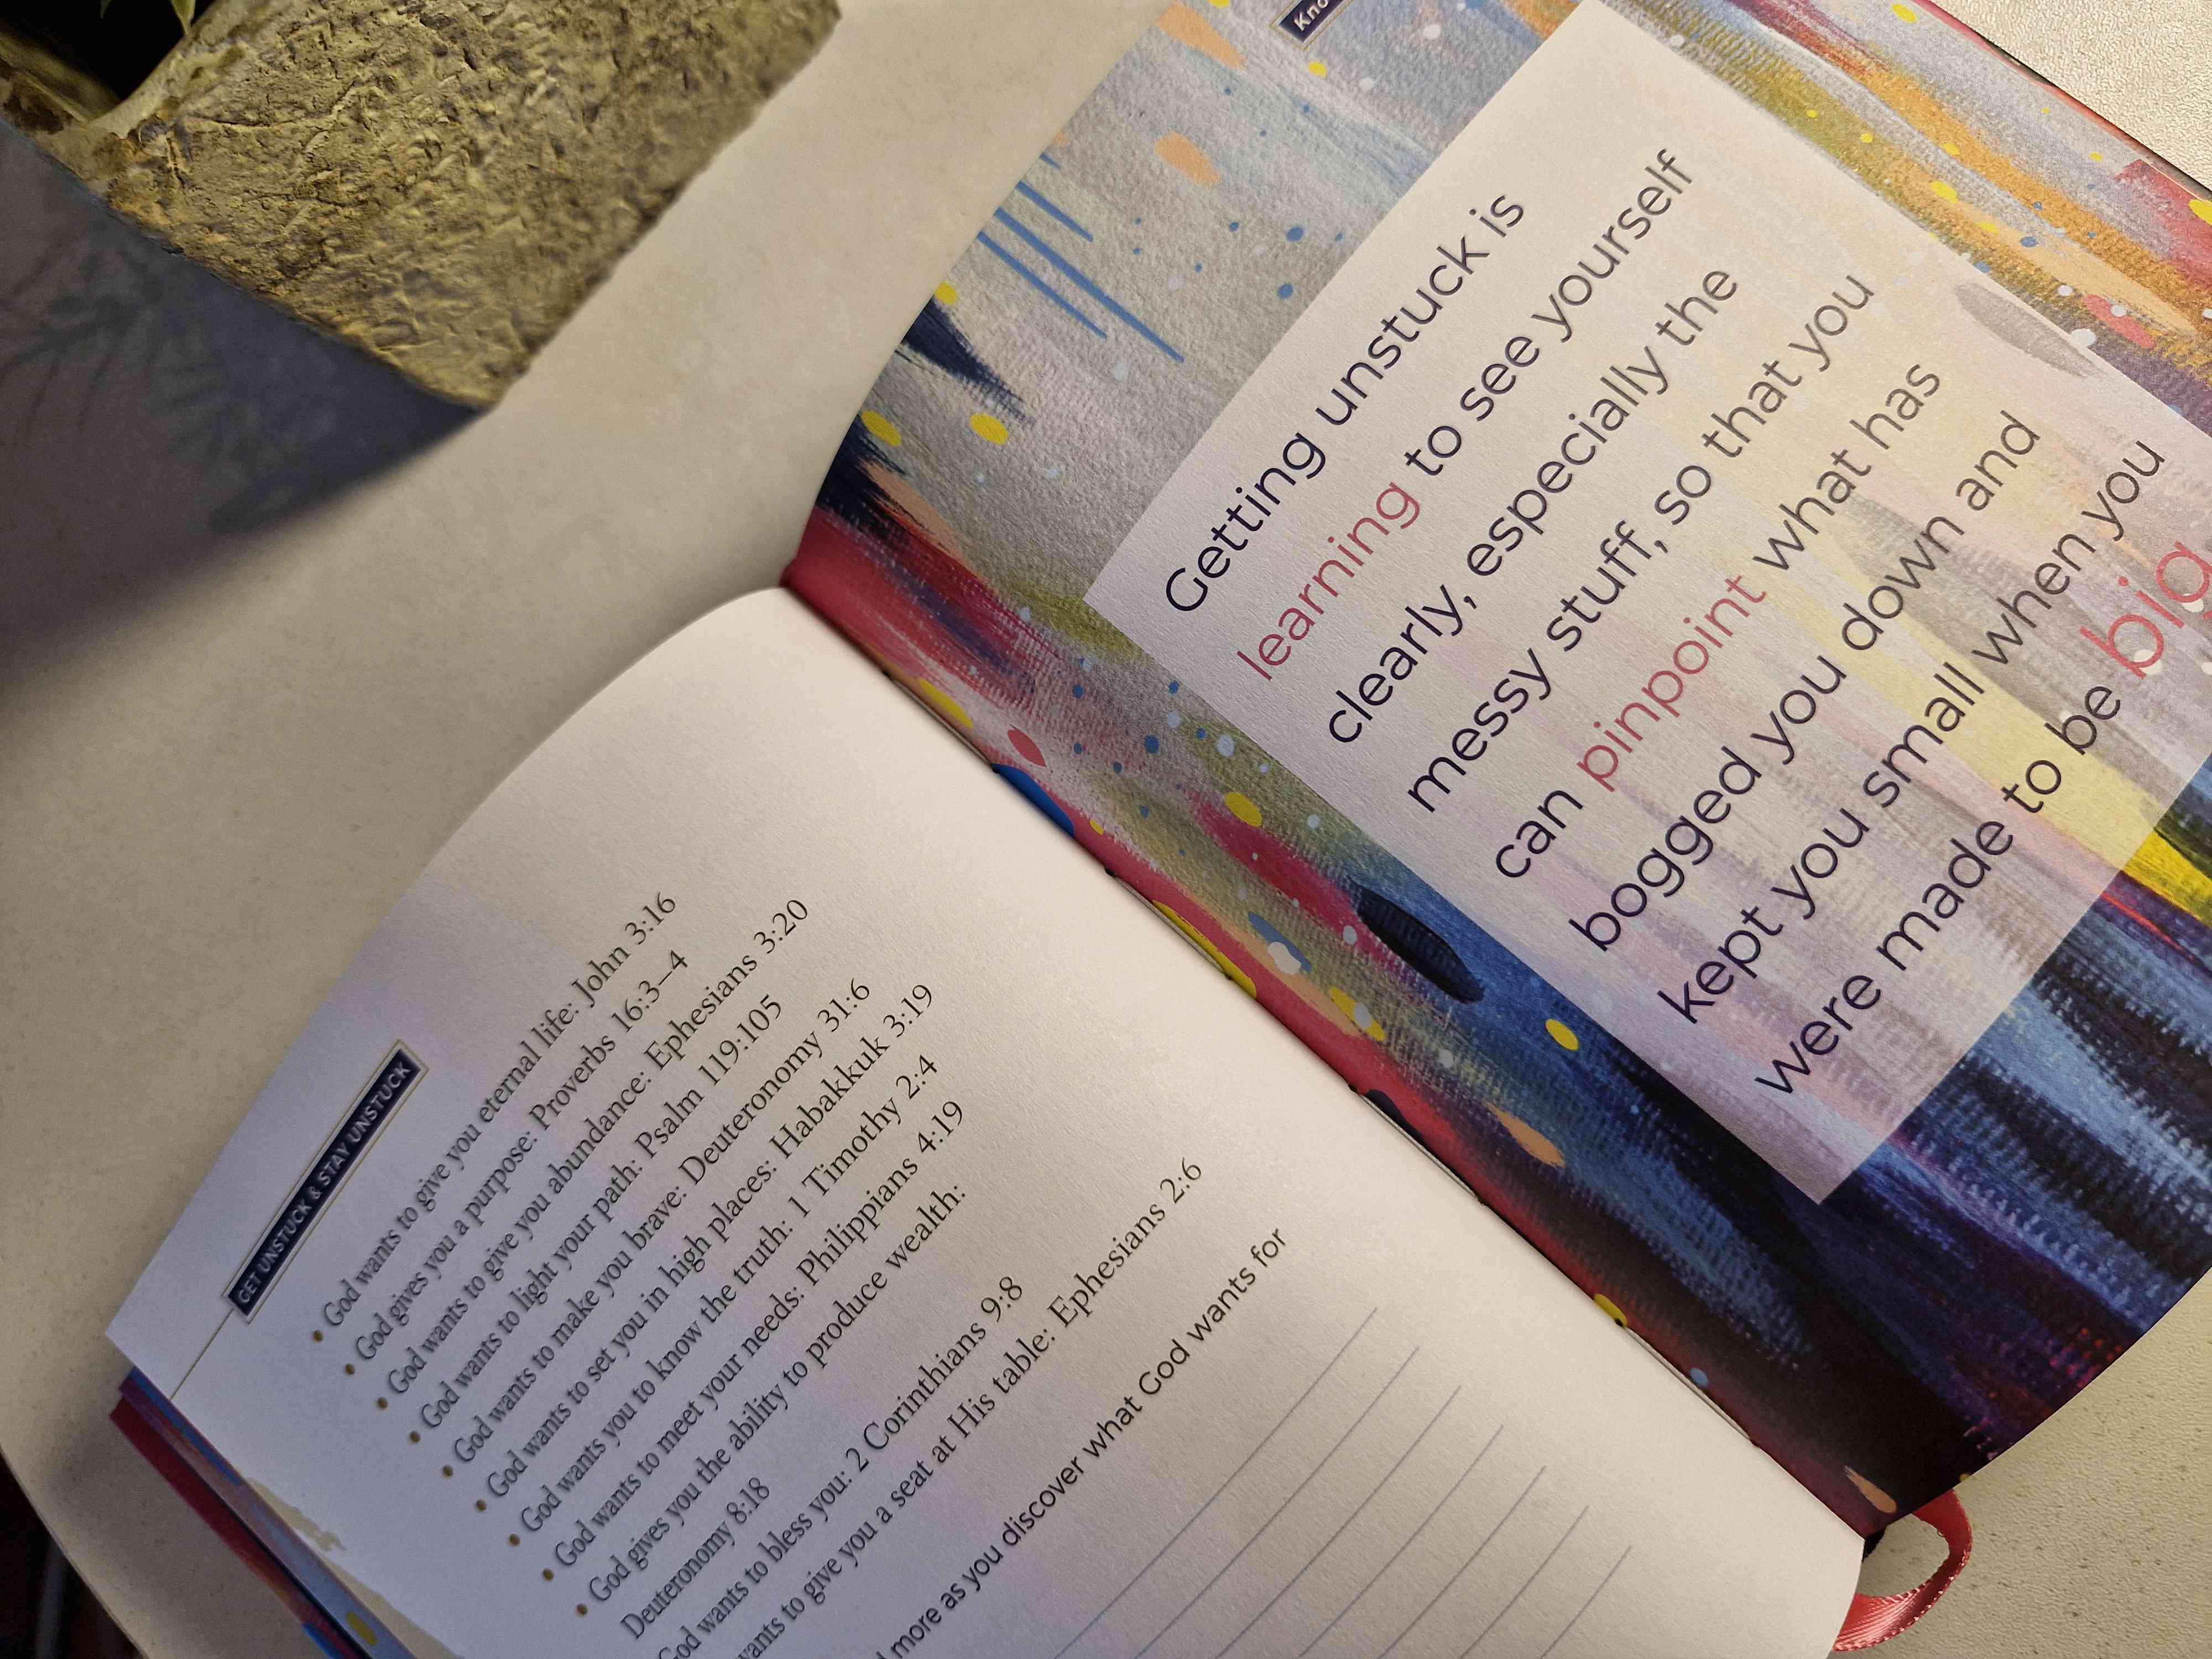 GET UNSTUCK & STAY UNSTUCK
• God wants to give you eternal life: John 3:16
• God gives you a purpose: Proverbs 16:3–4
• God wants to give you abundance: Ephesians 3:20
• God wants to light your path: Psalm 119:105
• God wants to make you brave: Deuteronomy 31:6
• God wants to set you in high places: Habakkuk 3:19
• God wants you to know the truth: 1 Timothy 2:4
• God wants to meet your needs: Philippians 4:19
• God gives you the ability to produce wealth:
Deuteronomy 8:18
God wants to bless you: 2 Corinthians 9:8
wants to give you a seat at His table: Ephesians 2:6
more as you discover what God wants for
Getting unstuck is
learning to see yourself
clearly, especially the
messy stuff, so that you
can pinpoint what has
bogged you down and
kept you small when you
were made to be big